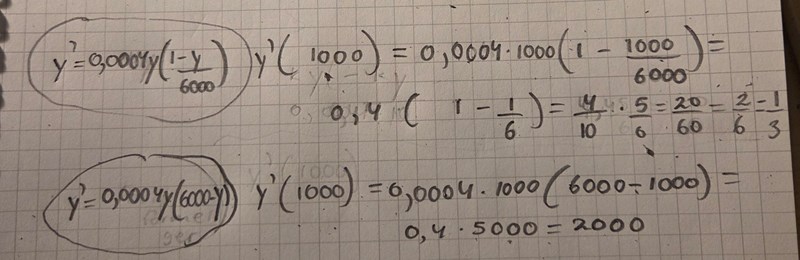 y' = 0,0004y(1-y/6000) y'(1000) = 0,0004·1000(1 - 1000/6000) =
0,4 (1 - 1/6) = 4/10 · 5/6 = 20/60 = 2/6 = 1/3
y' = 0,0004y(6000-y) y'(1000) = 0,0004·1000(6000-1000) =
0,4·5000 = 2000